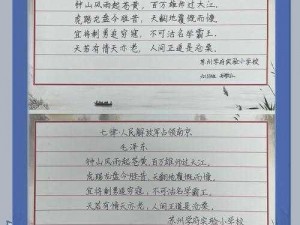 钟山风雨起苍黄，百万雄师过大江。
虎踞龙盘今胜昔，天翻地覆慨而慷。
宜将剩勇追穷寇，不可沽名学霸王。
天若有情天亦老，人间正道是沧桑。
苏州学府实验小学校
七律·人民解放军占领南京
毛泽东
钟山风雨起苍黄，百万雄师过大江。
虎踞龙盘今胜昔，天翻地覆慨而慷。
宜将剩勇追穷寇，不可沽名学霸王。
天若有情天亦老，人间正道是沧桑。
苏州学府实验小学校